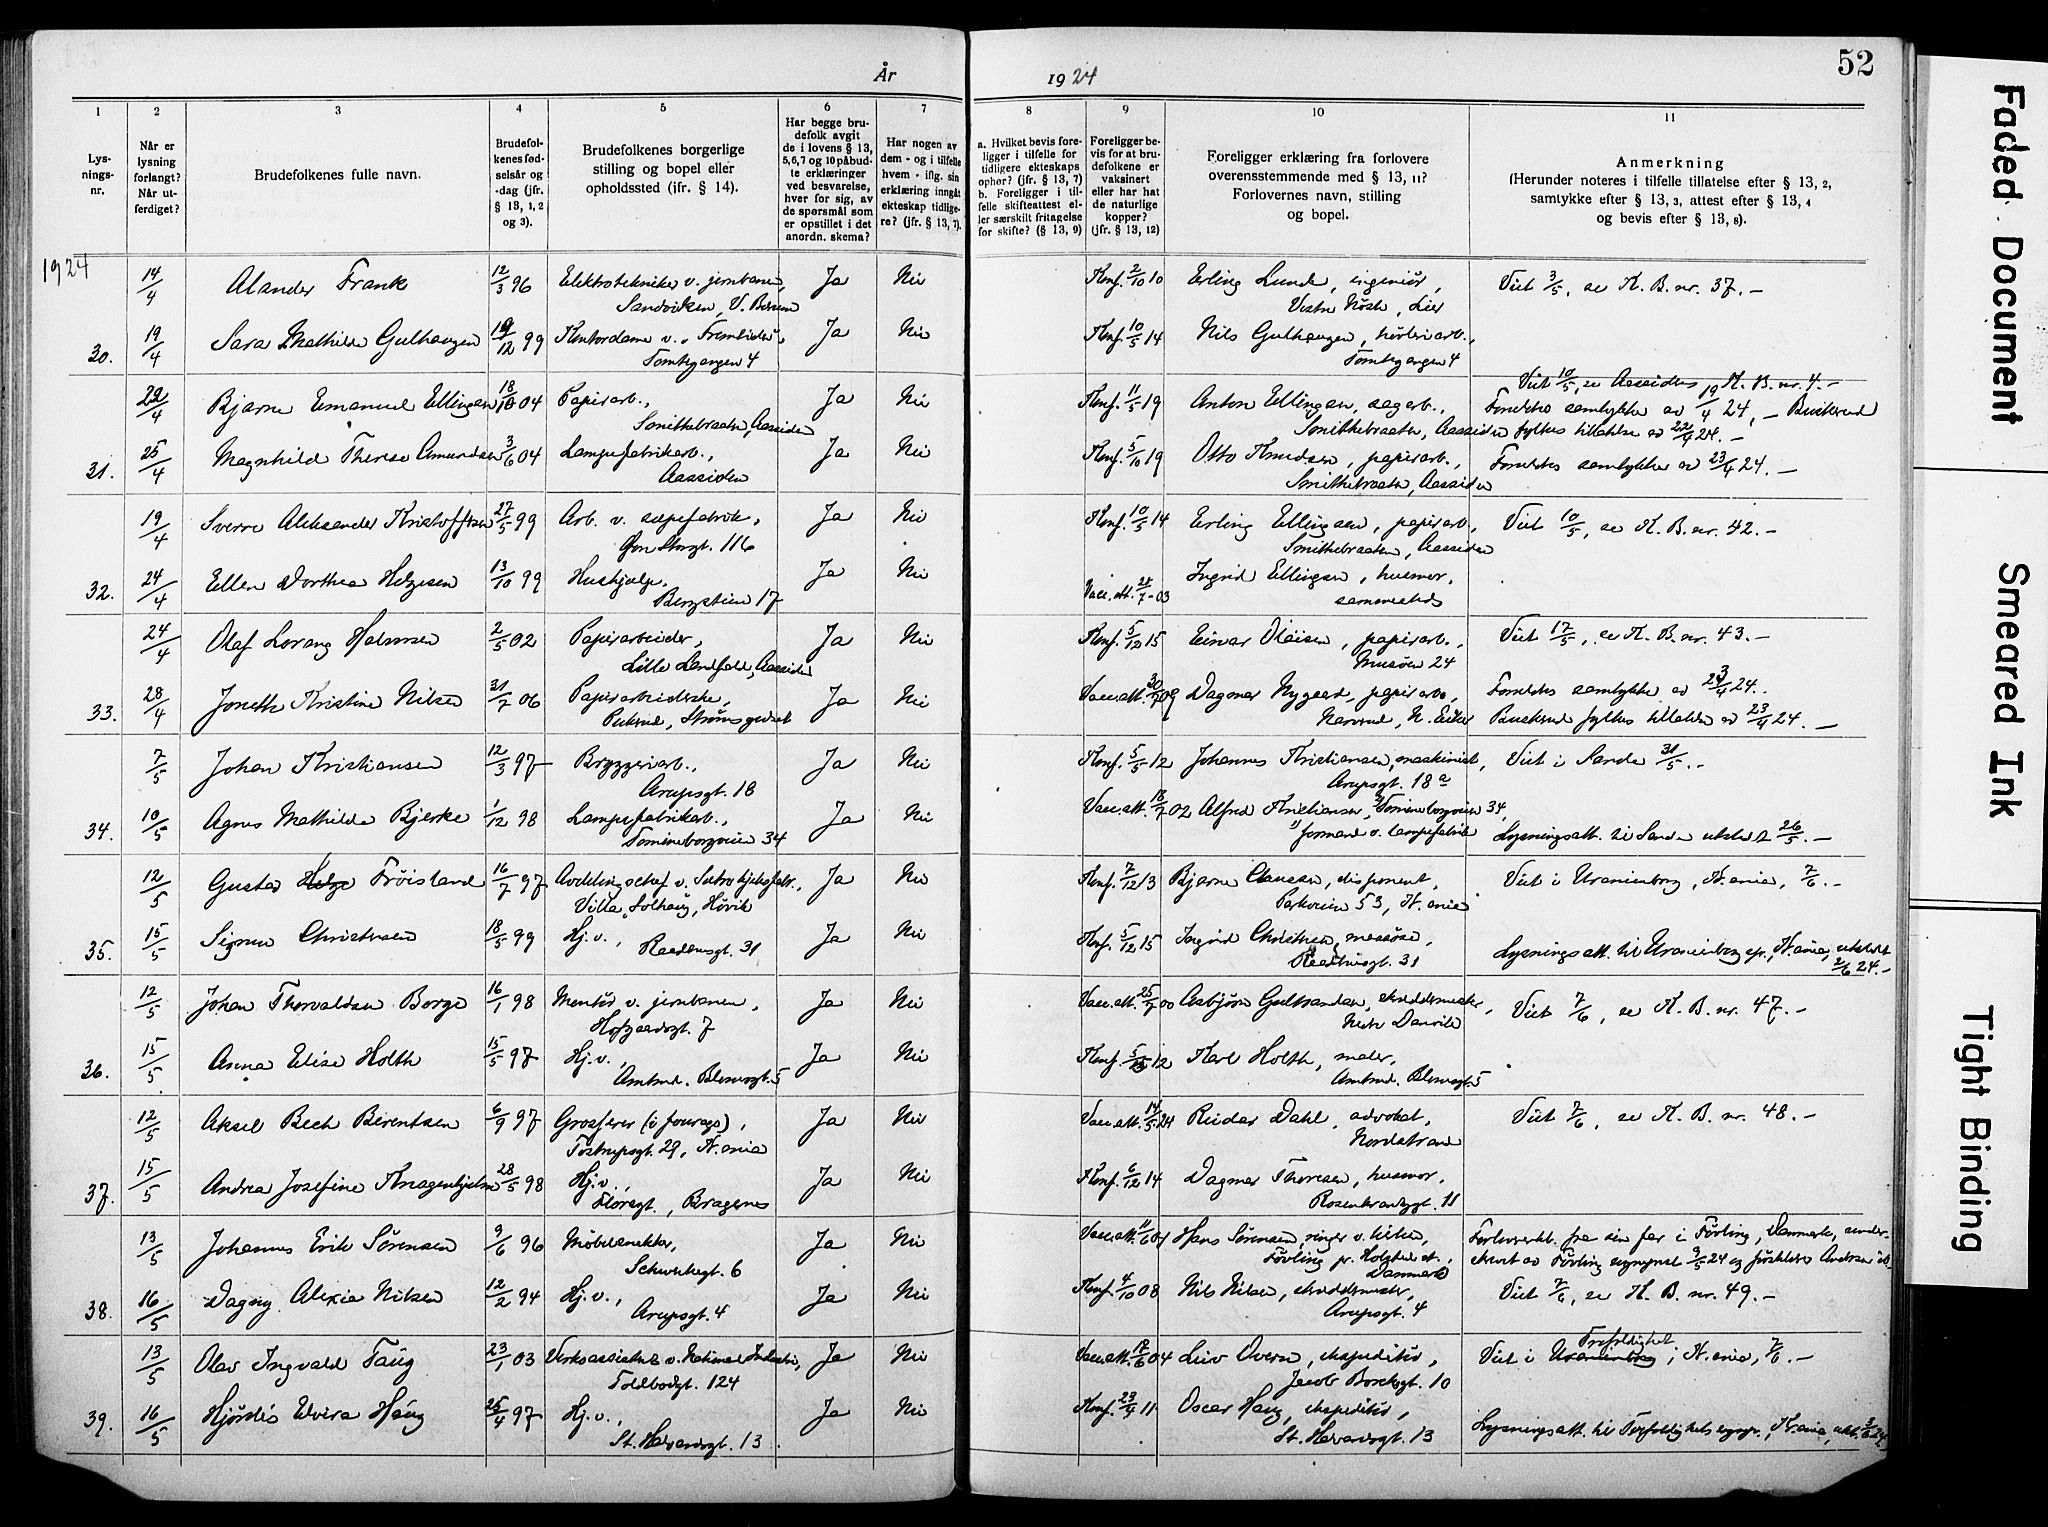 År 1924
52
1
2
3
4
5
6
7
8
9
10
11
Lysningsnr.
Når er lysning forlangt? Når utferdiget?
Brudefolkenes fulle navn.
Brudefolkenes fødselsår og -dag (jfr. § 13, 1, 2 og 3).
Brudefolkenes borgerlige stilling og bopel eller opholdssted (ifr. § 14).
Har begge brudefolk avgit de i lovens § 13, 5, 6, 7 og 10 påbudte erklæringer ved besvarelse, hver for sig, av de spørsmål som er opstillet i det anordn. skema?
Har nogen av dem - og i tilfelle hvem - iflg. sin erklæring inngåt ekteskap tidligere? (jfr. § 13, 7).
a. Hvilket bevis foreligger i tilfelle for tidligere ekteskaps ophør? (jfr. § 13, 7) b. Foreligger i tilfelle skifteattest eller særskilt fritagelse for skifte? (§ 13, 9)
Foreligger bevis for at brudefolkene er vaksinert eller har hat de naturlige kopper? (jfr. § 13, 12)
Foreligger erklæring fra forlovere overensstemmende med § 13, 11? Forlovernes navn, stilling og bopel.
Anmerkning (Herunder noteres i tilfelle tillatelse efter § 13, 2, samtykke efter § 13, 3, attest efter § 13, 4 og bevis efter § 13, 8).
1924
14/4 Alander Frank 12/3 96 Elektrotekniker v. jernbanen, Ja Nei Konf. 2/10 10 Erling Lunde, ingeniør, Viet 3/5, se K. B. nr. 37. -
Sandviken, V. Bærum Lier
30. 19/4 Sara Mathilde Gulhaugen 12 99 Kontordame v. "Fremtiden", Ja Nei Konf. 10/5 14 Nils Gulhaugen,
Tomtegangen 4 Tomtegangen 4
Viet 10/5, se Aassiden K. B. nr. 4. -
22/4 Bjarne Emanuel Ellingsen 18/10 04 Papirarb., Ja Nei Konf. 11/5 19 Anton Ellingsen, sagarb., Foreldres samtykke av 19/4 24, - Buskerud
Smithebraaten, Aassiden Smithebraaten, Aassiden fylkes tillatelse av 22/4 24. -
31. 25/4 Magnhild Therese Amundsen 3/6 04 Lampefabrikarb., Ja Nei Konf. 5/10 19 Otto Knudsen, papirarb., Foreldres samtykke av 23/4 24. -
Aassiden Smithebraaten, Aassiden
19/4 Sverre Aleksander Kristoffersen 27/5 99 Arb. v. sæpefabrik, Ja Nei Konf. 10/5 14 Erling Ellingsen, papirarb., Viet 10/5, se K. B. nr. 42. -
Øvre Storgt. 116 Smithebraaten, Aassiden
32. 24/4 Ellen Dorthea Helgesen 13/10 99 Hushjelp, Ja Nei Vacc. att. 7-03 Ingrid Ellingsen, husmor,
Bergstien 17 sammesteds
24/4 Olaf Lorang Halvorsen 2/5 02 Papirarbeider, Ja Nei Konf. 5/12 15 Einar Olaisen, papirarb., Viet 17/5, se K. B. nr. 43. -
Lille Landfald, Aassiden Musøen 24
33. 28/4 Jonette Kristine Nilsen 31/7 06 Papirarbeiderske, Ja Nei Vacc. att. 30/7 09 Dagmar Nygaard, papirarb., Foreldres samtykke av 23/4 24.
Pukerud, Strømsgodset N. Eiker Buskerud fylkes tillatelse av 23/4 24. -
7/5 Johan Kristiansen 12/3 97 Bryggeriarb., Ja Nei Konf. 5/5 12 Johannes Kristiansen, maskinist, Viet i Sande 31/5. -
Arupsgt. 18 Arupsgt. 18 a
34. 10/5 Agnes Mathilde Bjerke 1/12 98 Lampefabrikarb., Ja Nei Vacc. att. 18/7 02 Alfred Kristiansen, Tomineborgveien 34,
Tomineborgveien 34 formand v. lampefabrik Lysningsatt. til Sande utstedt 26/5. -
12/5 Gustav Helge Frøisland 16/7 97 Avdelingschef v. Ja Nei Konf. 7/12 13 Bjarne Clausen, disponent, Viet i Uranienborg, Kr.ania, 7/6. -
Villa "Solhaug", Høvik Parkveien 53, Kr.ania
35. 15/5 Signe Christensen 18/5 99 Hj. v., Ja Nei Konf. 5/12 15 Ingrid Christensen, massøse, Lysningsatt. til Uranienborg spr., Kr.ania, utstedt
Raadhusgt. 31 Raadhusgt. 31 2/6 24. -
12/5 Johan Thorvaldsen Borge 16/1 98 Montør v. jernbanen, Ja Nei Vacc. att. 25/7 00 Asbjørn Gulbrandsen, skreddermester, Viet 7/6, se K. B. nr. 47. -
Hofgaardsgt. 7 Nedr. Danvik
36. 15/5 Anna Elise Holth 15/5 97 Hj. v., Ja Nei Konf. 12 Karl Holth, maler,
Amtmd. Blomsgt. 5 Amtmd. Blomsgt. 5
12/5 Aksel Bech Berentsen 6/9 97 Grosserer (i fourage), Ja Nei Vacc. att. 14/5 24 Reidar Dahl, advokat, Viet 7/6, se K. B. nr. 48. -
Tostrupsgt. 29, Kr.ania Nordstrand
37. 15/5 Andrea Josefine Knagenhjelm 28/5 98 Hj. v., Ja Nei Konf. 6/12 14 Dagmar Thoresen, husmor,
Floragt., Bragernes Rosenkrantzgt. 11
13/5 Johannes Erik Sørensen 9/6 96 Møbelsnekker, Ja Nei Vacc. att. 11/6 04 Hans Sørensen, ringer v. kirken, Forloverkl. fra sin far i Føvling, Danmark, under-
Schwenckegt. 6 Føvling pr. Holsted st., Danmark skrevet av Føvling sogneprest 9/5 24
38. 16/5 Dagny Alexia Nilsen 12/2 94 Hj. v., Ja Nei Konf. 4/10 08 Nils Nilsen, skreddermester, Viet 7/6, se K. B. nr. 49. -
Arupsgt. 4 Arupsgt. 4
13/5 Olav Ingvald Taug 23/1 03 Verksassistent v. National Industri, Ja Nei Vacc. att. 04 Leiv Oversen, ekspeditør, Viet i Uranienborg Trefoldighet, Kr.ania, 7/6. -
Toldbodgt. 124 Jacob Borchsgt. 10
39. 16/5 Hjørdis Elvira Haug 25/4 97 Hj. v., Ja Nei Konf. 23/4 11 Oscar Haug, ekspeditør,
St. Halvardsgt. 13 St. Halvardsgt. 13 Lysningsatt. til Trefoldighets sogn, Kr.ania, utst. 3/6 24.
Faded Document
Smeared Ink
Tight Binding